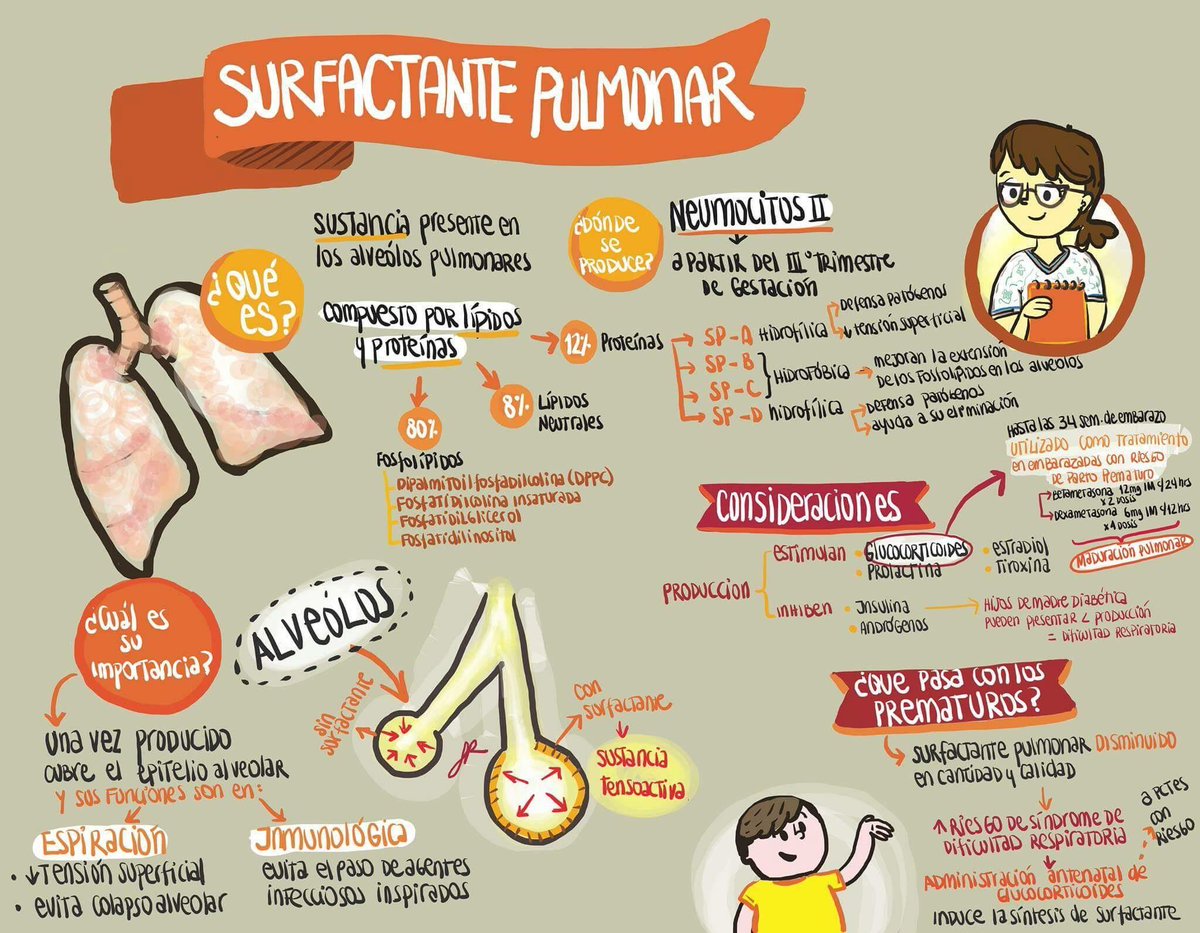 SURFACTANTE PULMONAR
¿QUÉ
ES?
SUSTANCIA presente en
los alveólos pulmonares
compuesto por lípidos
y proteínas
80%
Fosfolípidos
Dipalmitoilfosfadilcolina (DPPC)
Fosfatidicolina insaturada
Fosfatidilglicerol
Fosfatidilinositol
8%
Lípidos
Neutrales
12%
Proteínas
SP-A Hidrofílica
Defensa patógenos
↓ tensión superficial
SP-B
SP-C
Hidrofóbica → mejoran la extensión
de los fosfolípidos en los alveolos
SP-D hidrofílica
Defensa patógenos
ayuda a su eliminación
¿DÓNDE
SE
PRODUCE?
NEUMOCITOS II
a partir del III° Trimestre
de gestación
Consideraciones
PRODUCCION
ESTIMULAN
• GLUCOCORTICOIDES
• Prolactina
• estradiol
• Tiroxina
INHIBEN
• Insulina
• Andrógenos
Hijos de madre diabética
pueden presentar < producción
= dificultad respiratoria
Hasta las 34 sem. de embarazo
utilizado como tratamiento
en embarazadas con riesgo
de parto prematuro
Betametasona 12mg IM c/24hrs
x 2 dosis
Dexametasona 6mg IM c/12hrs
x 4 dosis
Maduración pulmonar
¿Cuál es
su
importancia?
una vez producido
cubre el epitelio alveolar
y sus funciones son en:
ESPIRACIÓN
• ↓ Tensión superficial
• evita colapso alveolar
Inmunológica
evita el paso de agentes
infecciosos inspirados
ALVEÓLOS
sin
surfactante
con
surfactante
sustancia
tensoactiva
JR
¿Que pasa con los
PREMATUROS?
surfactante pulmonar DISMINUIDO
en cantidad y calidad
↑ Riesgo de síndrome de
dificultad respiratoria
Administración antenatal de
glucocorticoides
a PCTES
con
Riesgo
induce la síntesis de surfactante